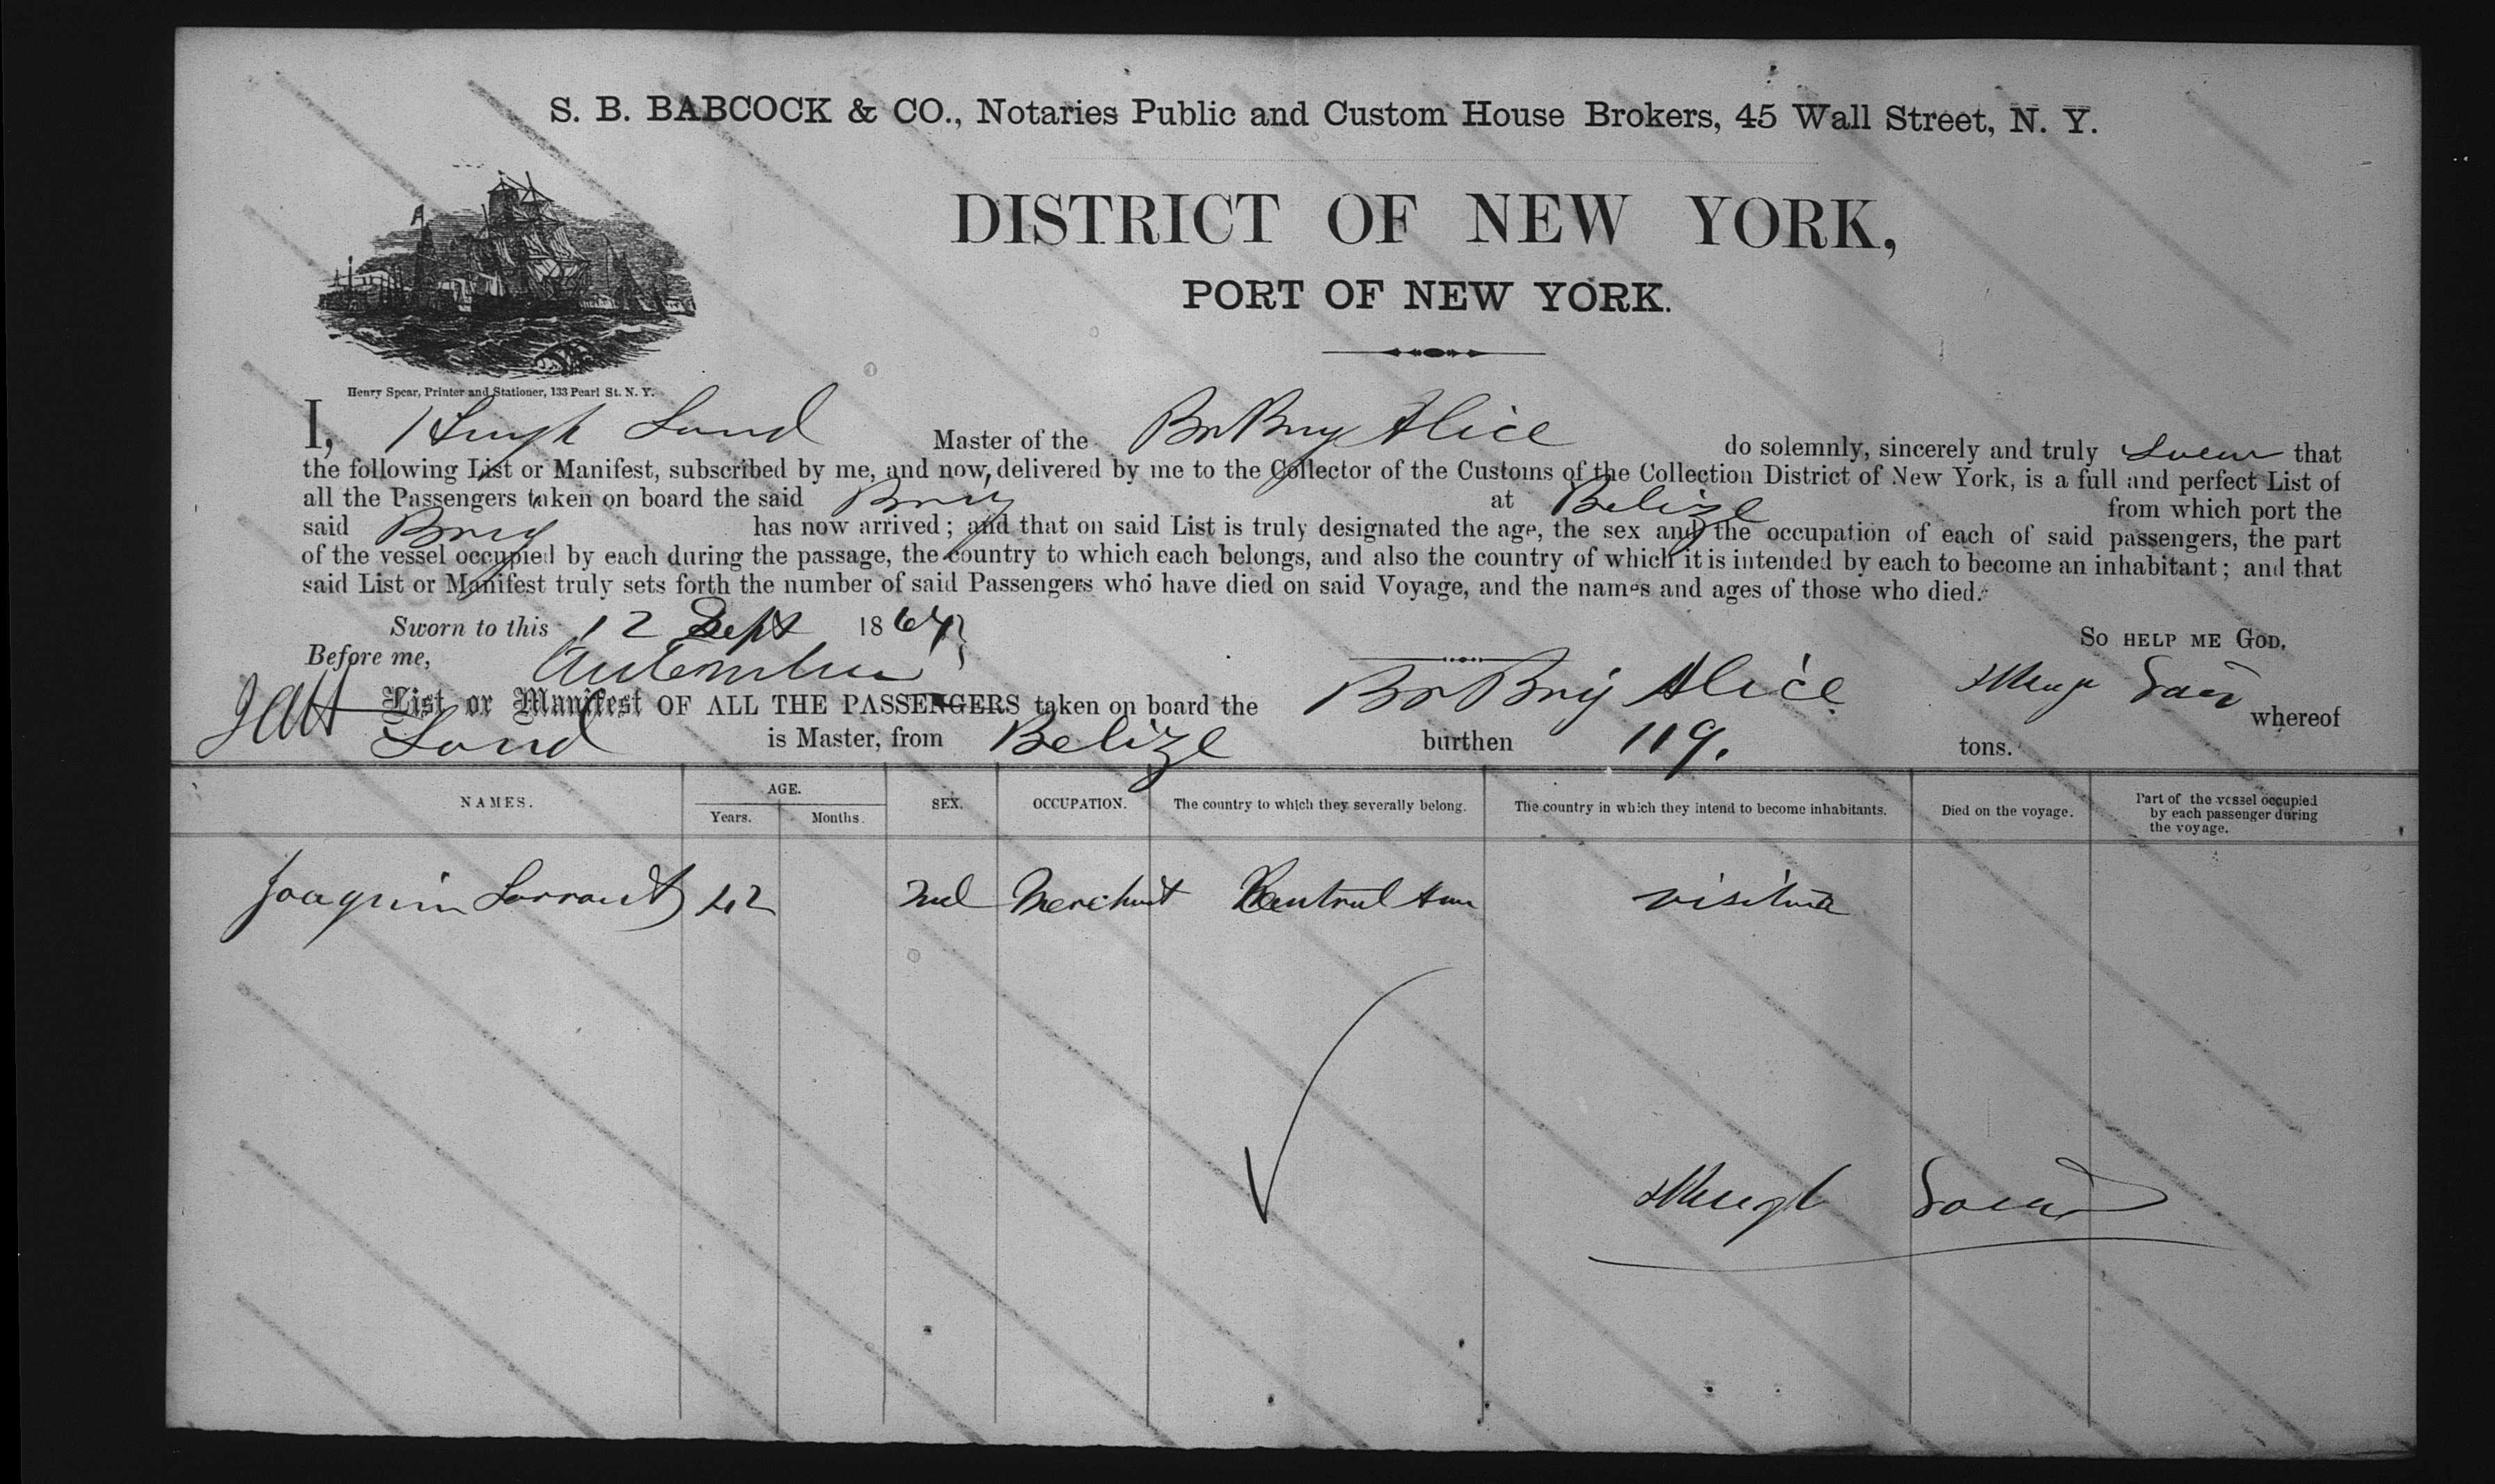 S. B. BABCOCK & CO., Notaries Public and Custom House Brokers, 45 Wall Street, N. Y.
DISTRICT OF NEW YORK,
PORT OF NEW YORK.
Henry Spear, Printer and Stationer, 133 Pearl St. N. Y.
I, Hugh Master of the Br Brig Alice do solemnly, sincerely and truly that
the following List or Manifest, subscribed by me, and now, delivered by me to the Collector of the Customs of the Collection District of New York, is a full and perfect List of
all the Passengers taken on board the said Brig at Belize from which port the
said Brig has now arrived; and that on said List is truly designated the age, the sex and the occupation of each of said passengers, the part
of the vessel occupied by each during the passage, the country to which each belongs, and also the country of which it is intended by each to become an inhabitant; and that
said List or Manifest truly sets forth the number of said Passengers who have died on said Voyage, and the names and ages of those who died.
Sworn to this 12 Sept 1864 So HELP ME GOD,
Before me,
List or Manifest OF ALL THE PASSENGERS taken on board the Br Brig Alice whereof
is Master, from Belize burthen 119. tons.
NAMES. AGE. SEX. OCCUPATION. The country to which they severally belong. The country in which they intend to become inhabitants. Died on the voyage. Part of the vessel occupied by each passenger during the voyage.
Years. Months.
Joaquin 42 Merchant Central Am
Hugh